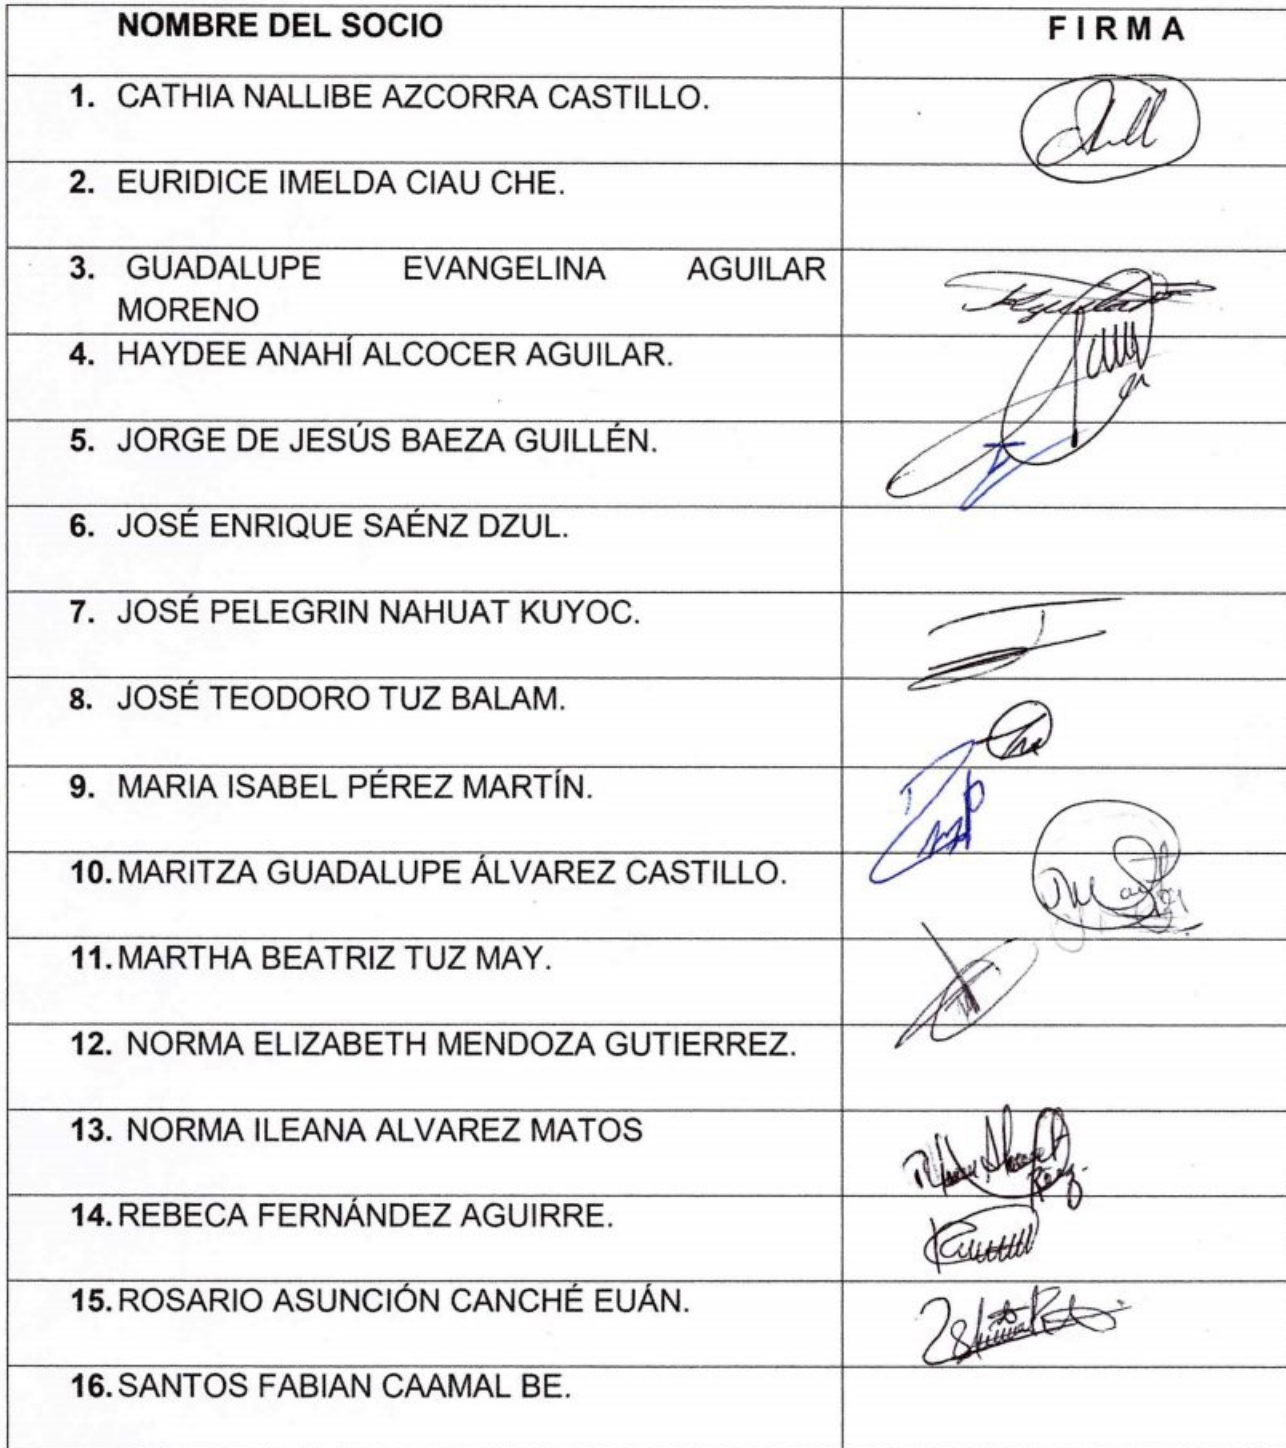 NOMBRE DEL SOCIO
FIRMA
1. CATHIA NALLIBE AZCORRA CASTILLO.
2. EURIDICE IMELDA CIAU CHE.
3. GUADALUPE EVANGELINA AGUILAR
MORENO
4. HAYDEE ANAHÍ ALCOCER AGUILAR.
5. JORGE DE JESÚS BAEZA GUILLÉN.
6. JOSÉ ENRIQUE SAÉNZ DZUL.
7. JOSÉ PELEGRIN NAHUAT KUYOC.
8. JOSÉ TEODORO TUZ BALAM.
9. MARIA ISABEL PÉREZ MARTÍN.
10. MARITZA GUADALUPE ÁLVAREZ CASTILLO.
11. MARTHA BEATRIZ TUZ MAY.
12. NORMA ELIZABETH MENDOZA GUTIERREZ.
13. NORMA ILEANA ALVAREZ MATOS
14. REBECA FERNÁNDEZ AGUIRRE.
15. ROSARIO ASUNCIÓN CANCHÉ EUÁN.
16. SANTOS FABIAN CAAMAL BE.